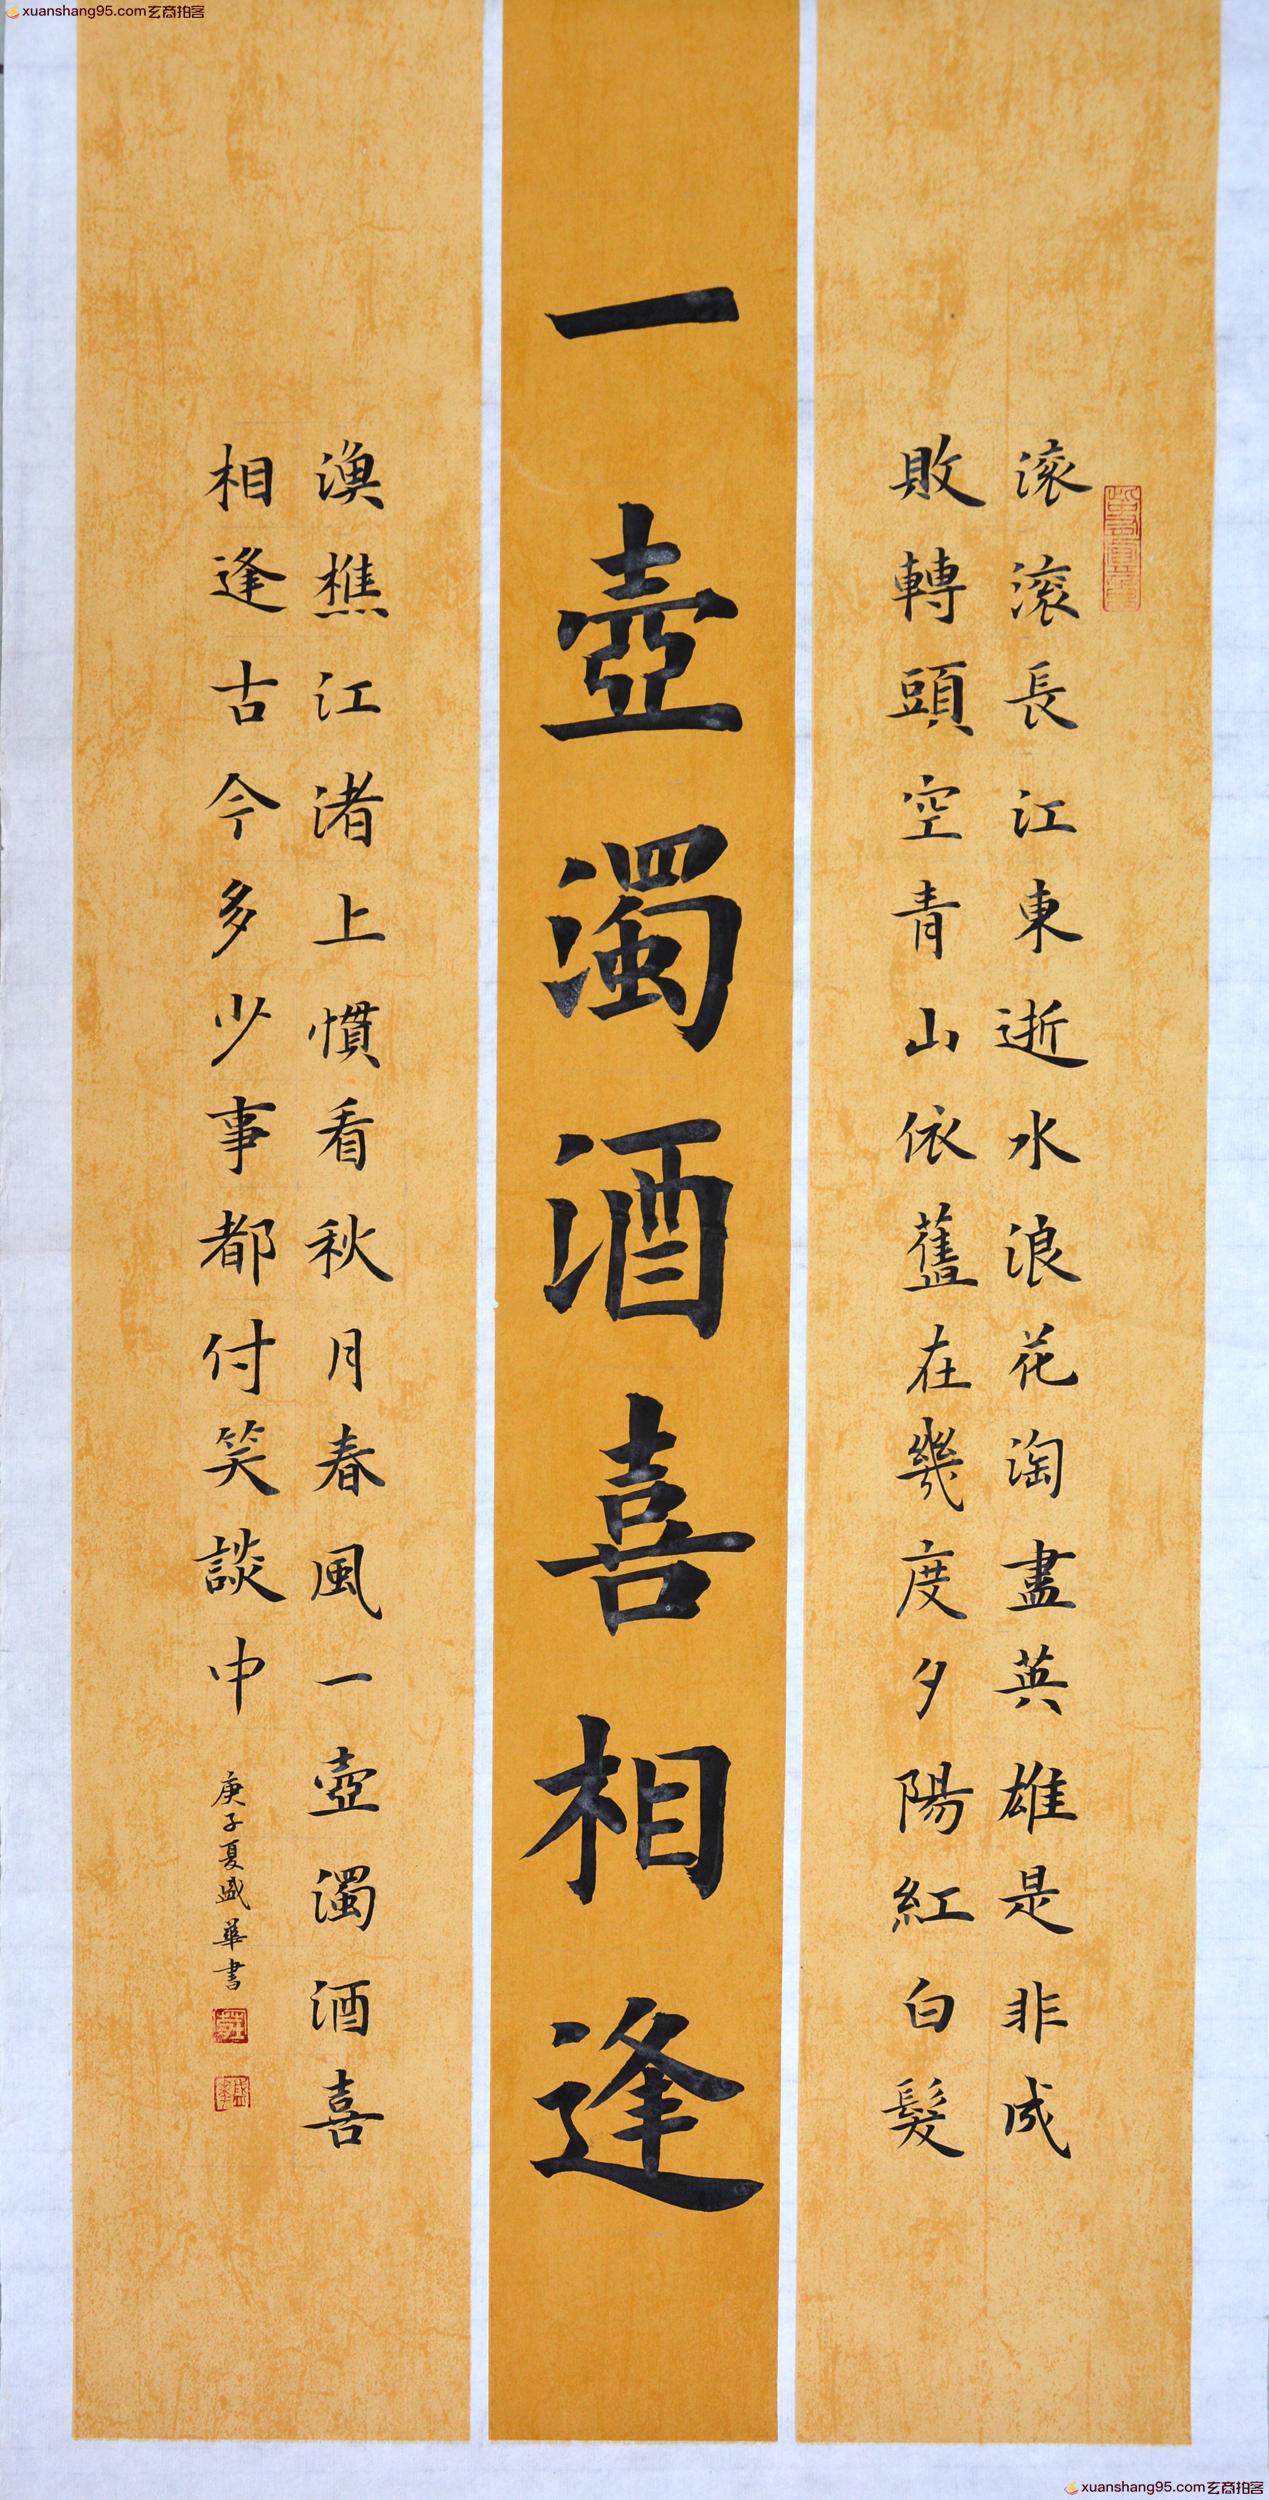 xuanshang95.com玄商拍客
滚滚長江東逝水浪花淘盡英雄是非成
敗轉頭空青山依舊在幾度夕陽紅白髮
一壺濁酒喜相逢
漁樵江渚上慣看秋月春風一壺濁酒喜
相逢古今多少事都付笑談中
庚子夏盛華书
xuanshang95.com玄商拍客